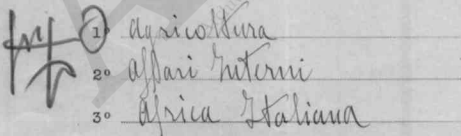 1º agricoltura
2º affari Interni
3º africa Italiana